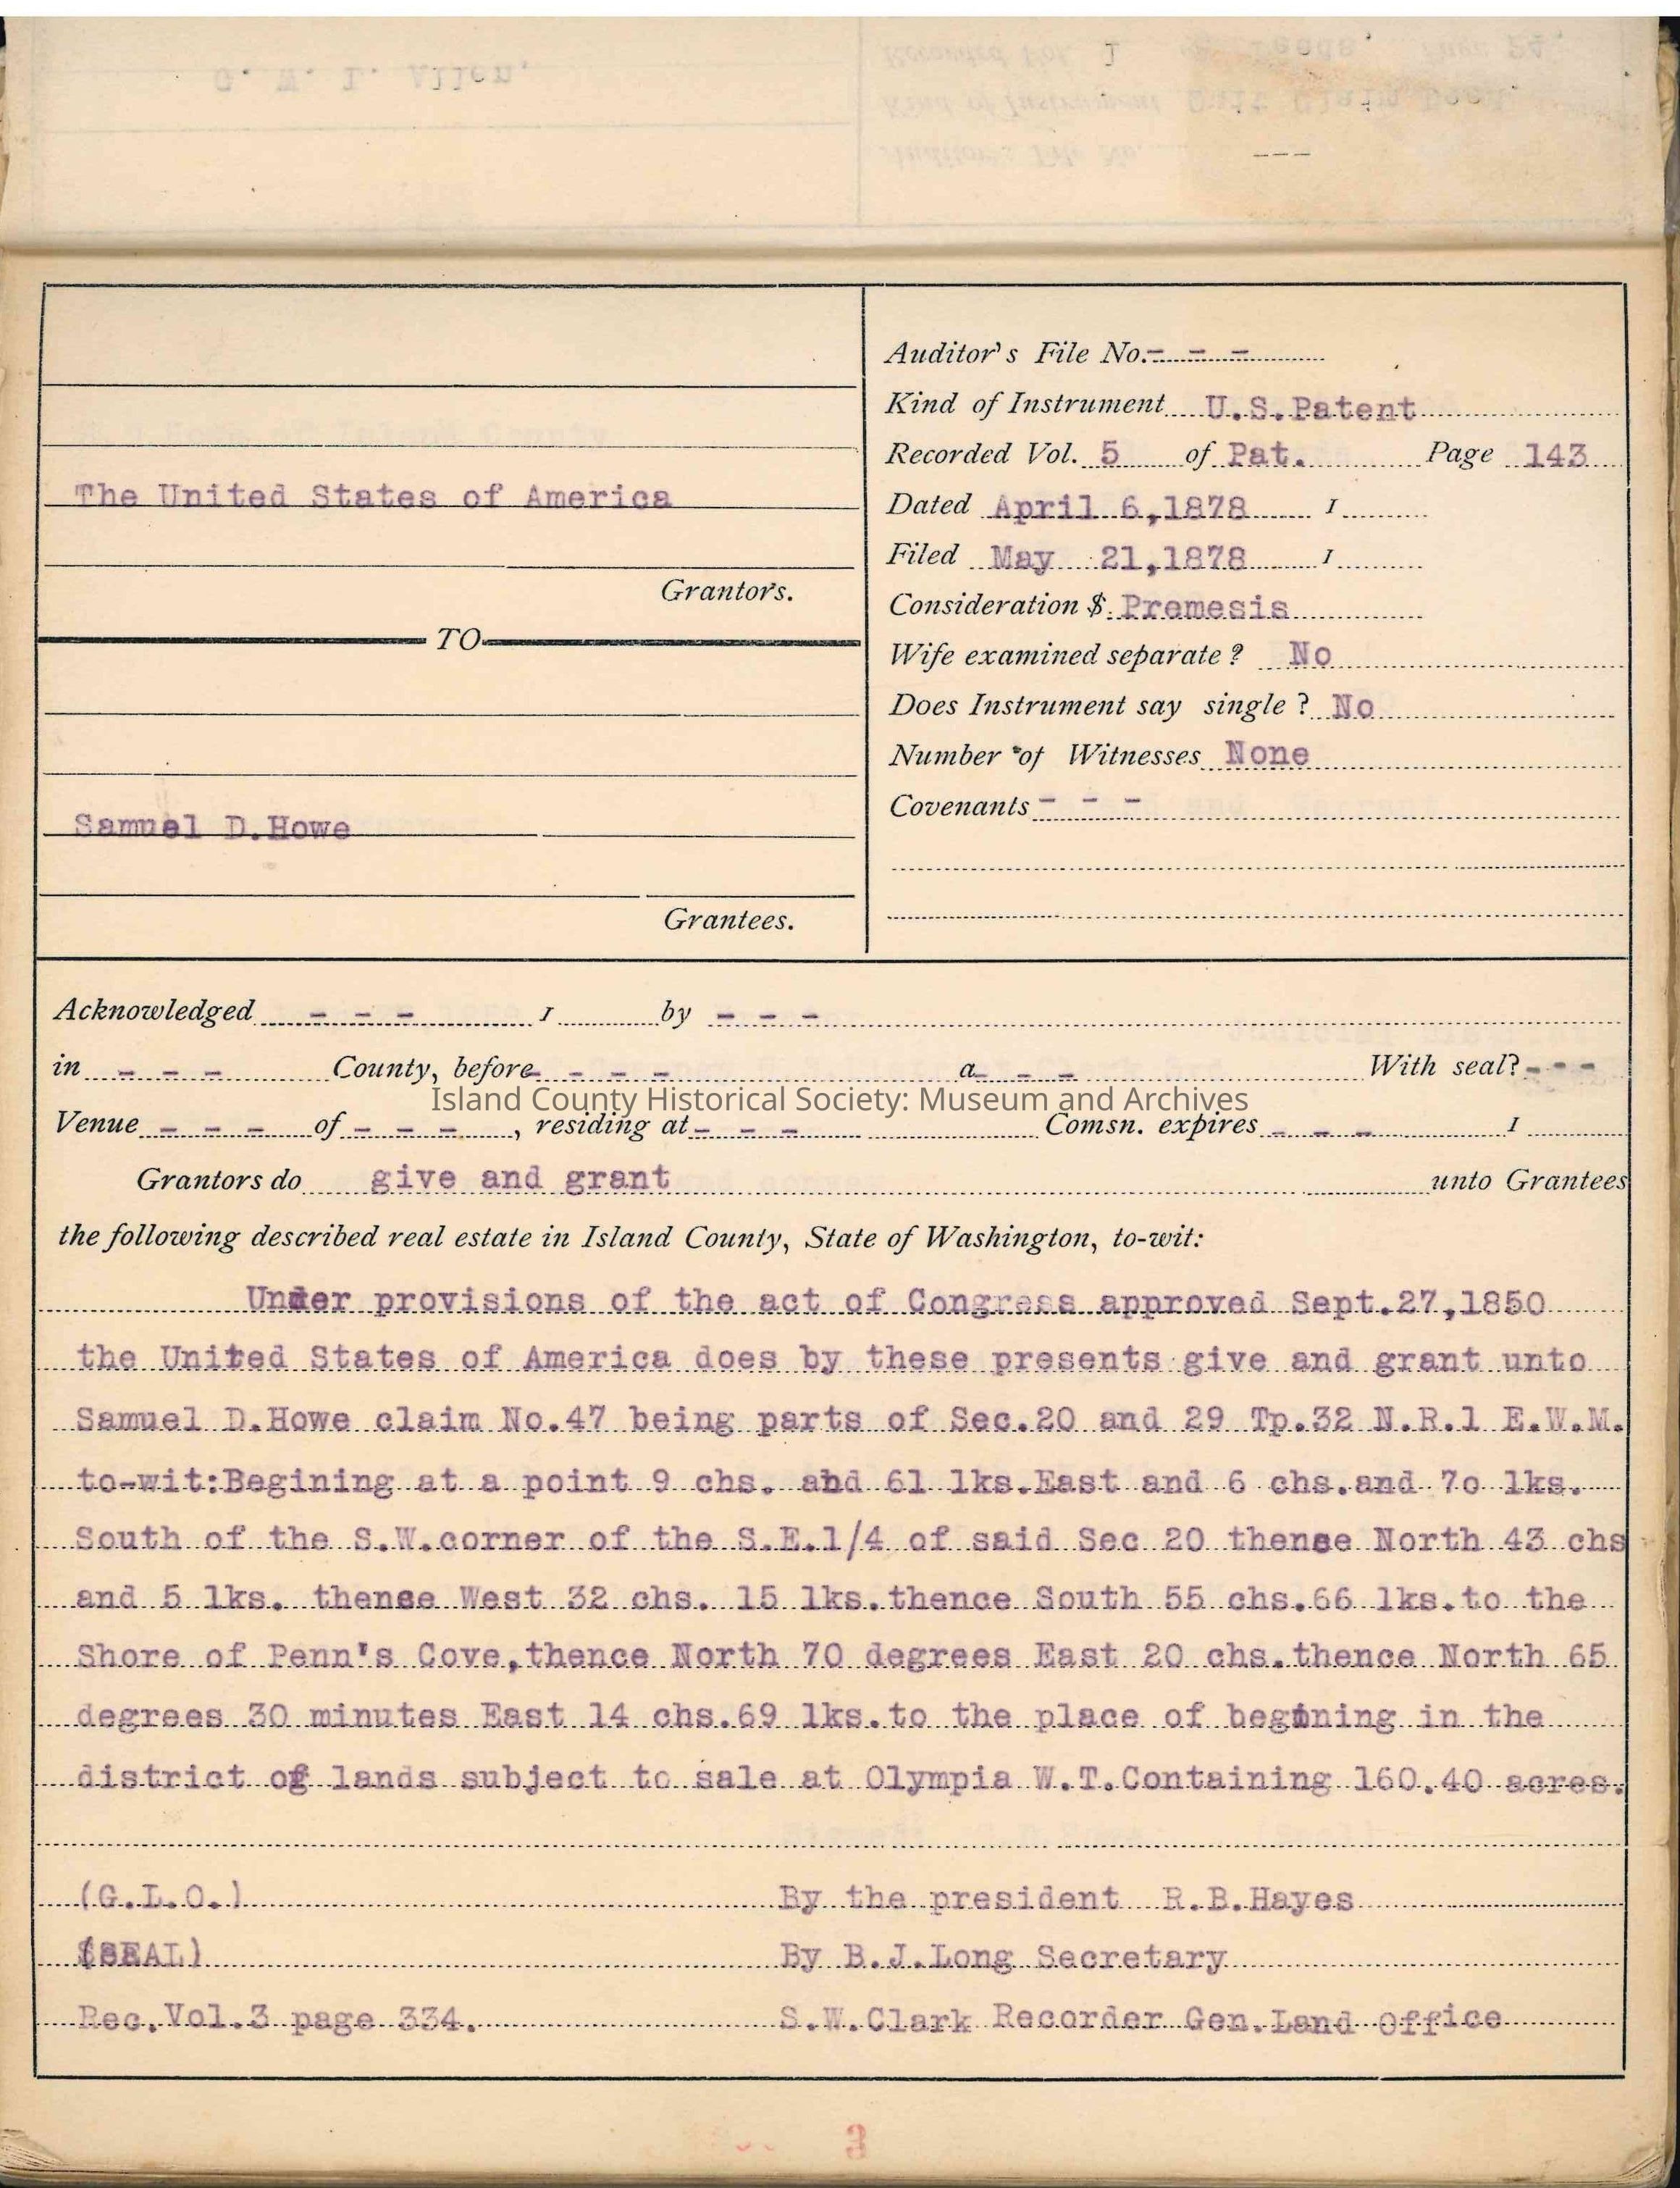 The United States of America
Grantors.
TO
Samuel D.Howe
Grantees.
Auditor's File No.- - -
Kind of Instrument U.S.Patent
Recorded Vol. 5 of Pat. Page 143
Dated April 6,1878 1
Filed May 21,1878 1
Consideration $ Premesis
Wife examined separate? No
Does Instrument say single? No
Number of Witnesses None
Covenants - - -
Acknowledged - - - 1 by - - -
in - - - County, before - - - a - - - With seal? - - -
Island County Historical Society: Museum and Archives
Venue - - - of - - -, residing at - - - Comsn. expires - - - 1
Grantors do give and grant unto Grantees
the following described real estate in Island County, State of Washington, to-wit:
Under provisions of the act of Congress approved Sept.27,1850
the United States of America does by these presents give and grant unto
Samuel D.Howe claim No.47 being parts of Sec.20 and 29 Tp.32 N.R.1 E.W.M.
to-wit:Begining at a point 9 chs. and 61 lks.East and 6 chs.and 70 lks.
South of the S.W.corner of the S.E.1/4 of said Sec 20 thence North 43 chs
and 5 lks. thence West 32 chs. 15 lks.thence South 55 chs.66 lks.to the
Shore of Penn's Cove,thence North 70 degrees East 20 chs.thence North 65
degrees 30 minutes East 14 chs.69 lks.to the place of begining in the
district of lands subject to sale at Olympia W.T.Containing 160.40 acres.
(G.L.O.) By the president R.B.Hayes
(SEAL) By B.J.Long Secretary
Rec.Vol.3 page 334. S.W.Clark Recorder Gen.Land Office
3